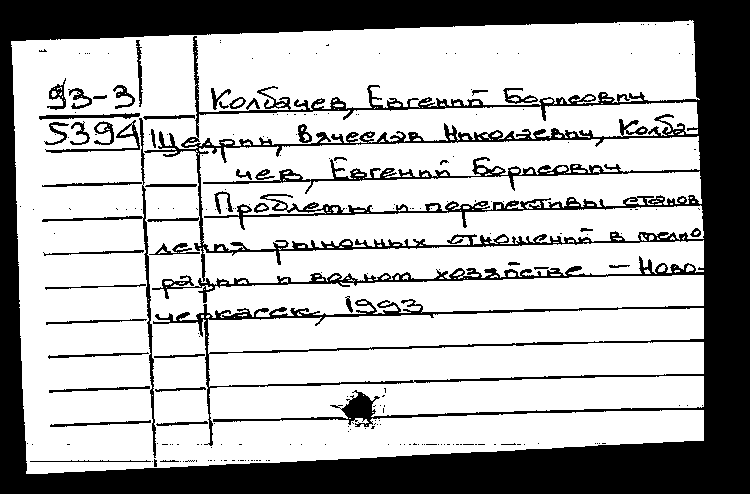 93-3 Колбачев, Евгений Борисович
5394 Щедрин, Вячеслав Николаевич, Колба-
чев, Евгений Борисович
Проблемы и перспективы станов
ления рыночных отношений в мелио
рации и водном хозяйстве. - Ново-
черкасск, 1993.